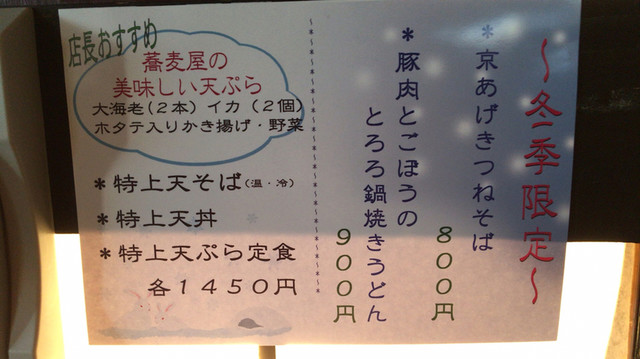 ～冬季限定～
＊京あげきつねそば
800円
＊豚肉とごぼうの
とろろ鍋焼きうどん
900円
店長おすすめ
蕎麦屋の
美味しい天ぷら
大海老(2本) イカ (2個)
ホタテ入りかき揚げ・野菜
＊特上天そば(温・冷)
＊特上天丼
＊特上天ぷら定食
各1450円